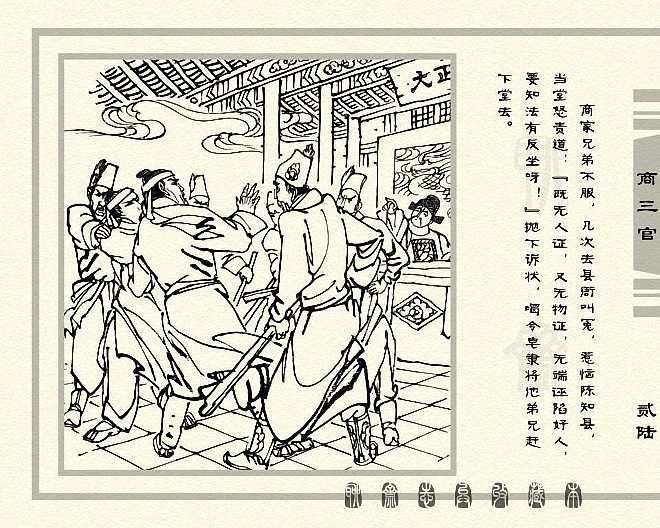 商家兄弟不服，几次去县衙叫冤，惹恼陈知县，
当堂怒责道：『既无人证，又无物证，无端诬陷好人，
要知法有反坐呀！』抛下诉状，喝令皂隶将他弟兄赶
下堂去。
商三官
贰陆
正大
聊斋志异收藏本